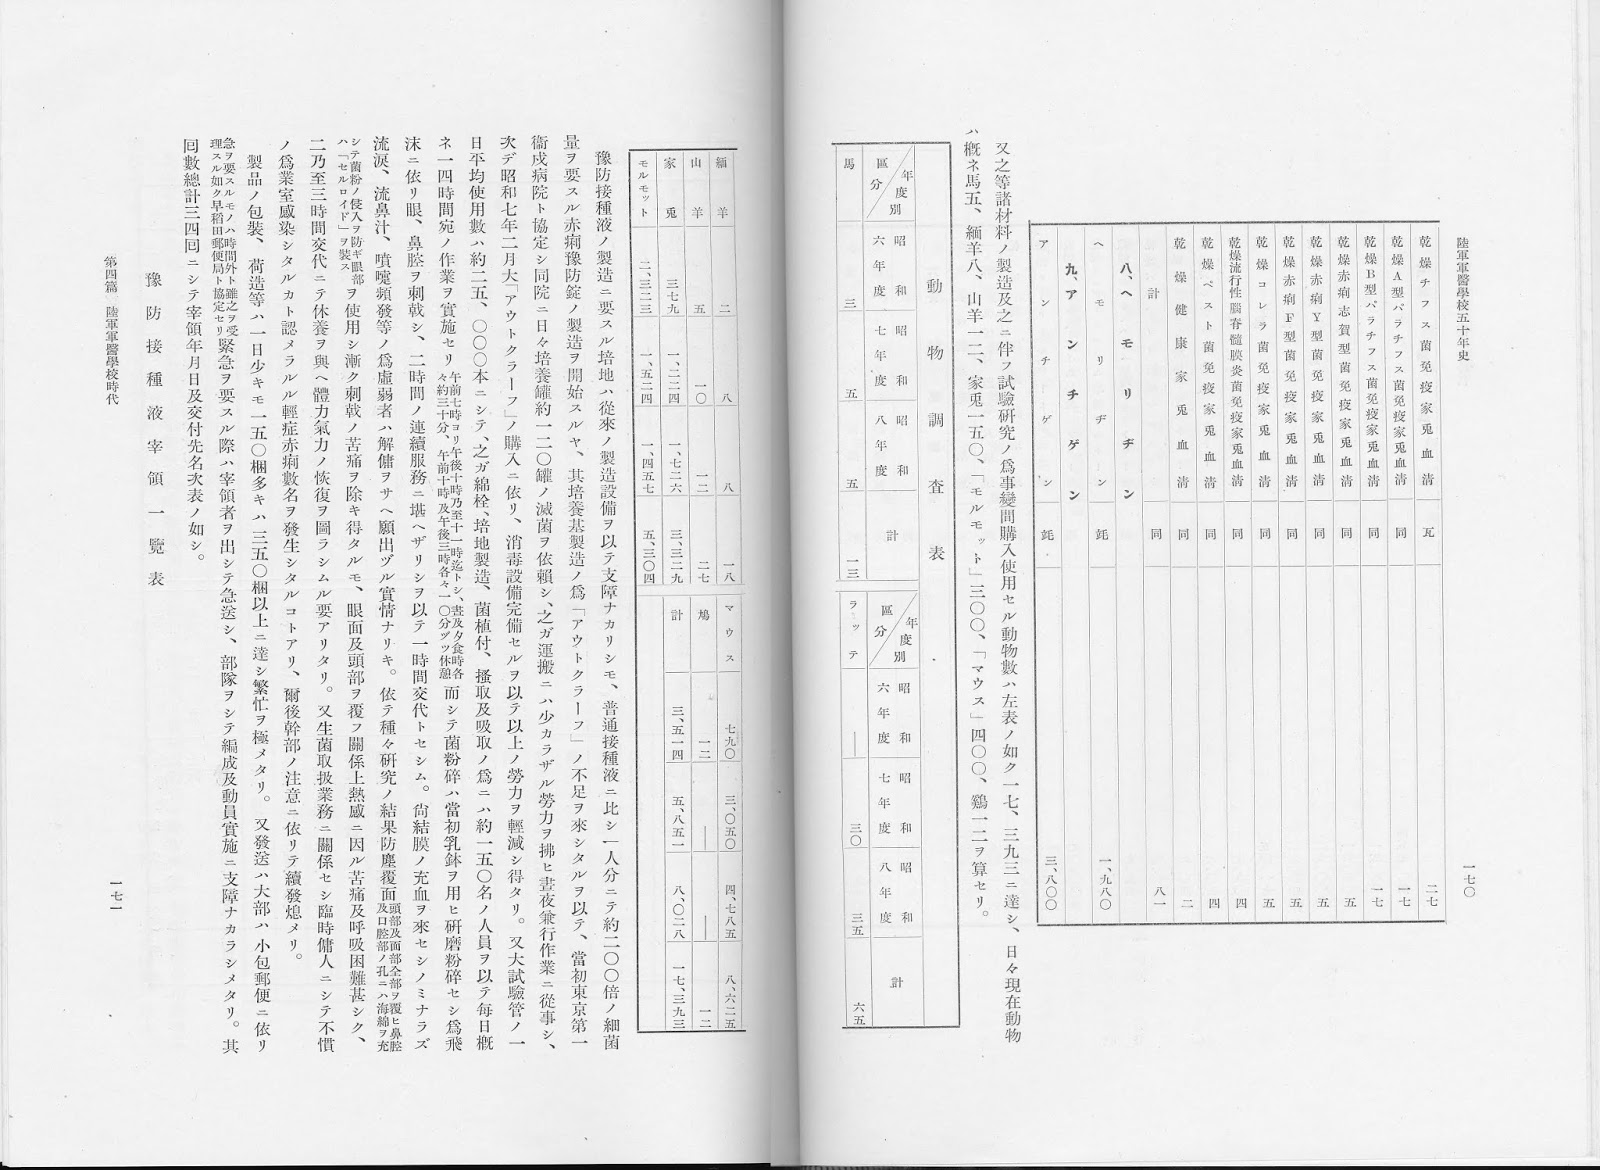 陸軍軍醫學校五十年史
一七〇
乾燥チフス菌免疫家兎血清 瓦 二七
乾燥A型パラチフス菌免疫家兎血清 同 一七
乾燥B型パラチフス菌免疫家兎血清 同 一七
乾燥赤痢志賀型菌免疫家兎血清 同 五
乾燥赤痢Y型菌免疫家兎血清 同 五
乾燥赤痢F型菌免疫家兎血清 同 五
乾燥コレラ菌免疫家兎血清 同 五
乾燥流行性腦脊髓膜炎菌免疫家兎血清 同 四
乾燥ペスト菌免疫家兎血清 同 四
乾燥健康家兎血清 同 二
計 同 八一
八、ヘモリヂン
ヘモリヂン 竓 一、九八〇
九、アンチゲン
アンチゲン 竓 三、八〇〇
又之等諸材料ノ製造及之ニ伴フ試驗硏究ノ爲事變間購入使用セル動物數ハ左表ノ如ク一七、三九三ニ達シ、日々現在動物
ハ槪ネ馬五、緬羊八、山羊一二、家兎一五〇、「モルモット」三〇〇、「マウス」四〇〇、鷄一二ヲ算セリ。
動物調査表
年度別 區分 昭和六年度 昭和七年度 昭和八年度 計 年度別 區分 昭和六年度 昭和七年度 昭和八年度 計
馬 三 五 五 一三 ラッテ ― 三〇 三五 六五
緬羊 二 八 八 一八 マウス 七九〇 三、〇五〇 四、七八五 八、六二五
山羊 五 一〇 一二 二七 鳩 一二 ― ― 一二
家兎 三七九 一、二二四 一、七二六 三、三二九 計 三、五一四 五、八五一 八、〇二八 一七、三九三
モルモット 二、三二三 一、五二四 一、四五七 五、三〇四
豫防接種液ノ製造ニ要スル培地ハ從來ノ製造設備ヲ以テ支障ナカリシモ、普通接種液ニ比シ一人分ニテ約二〇〇倍ノ細菌
量ヲ要スル赤痢豫防錠ノ製造ヲ開始スルヤ、其培養基製造ノ爲「アウトクラーフ」ノ不足ヲ來シタルヲ以テ、當初東京第一
衞戍病院ト協定シ同院ニ日々培養罐約一二〇罐ノ滅菌ヲ依賴シ、之ガ運搬ニハ少カラザル勞力ヲ拂ヒ晝夜兼行作業ニ從事シ、
次デ昭和七年二月大「アウトクラーフ」ノ購入ニ依リ、消毒設備完備セルヲ以テ以上ノ勞力ヲ輕減シ得タリ。又大試驗管ノ一
日平均使用數ハ約二五、〇〇〇本ニシテ、之ガ綿栓、培地製造、菌植付、搔取及吸取ノ爲ニハ約一五〇名ノ人員ヲ以テ每日槪
ネ一四時間宛ノ作業ヲ實施セリ 午前七時ヨリ午後十時乃至十一時迄トシ、晝及夕食時各々約三十分、午前十時及午後三時各々一〇分ヅツ休憩 而シテ菌粉碎ハ當初乳鉢ヲ用ヒ硏磨粉碎セシ爲飛
沫ニ依リ眼、鼻腔ヲ刺戟シ、二時間ノ連續服務ニ堪ヘザリシヲ以テ一時間交代トセシム。尙結膜ノ充血ヲ來セシノミナラズ
流淚、流鼻汁、噴嚔頻發等ノ爲虛弱者ハ解傭ヲサヘ願出ヅル實情ナリキ。依テ種々硏究ノ結果防塵覆面 頭部及面部全部ヲ覆ヒ鼻腔及口腔部ノ孔ニハ海綿ヲ充
シテ菌粉ノ侵入ヲ防ギ眼部ハ「セルロイド」ヲ裝ス ヲ使用シ漸ク刺戟ノ苦痛ヲ除キ得タルモ、眼面及頭部ヲ覆フ關係上熱感ニ因ル苦痛及呼吸困難甚シク、
二乃至三時間交代ニテ休養ヲ與ヘ體力氣力ノ恢復ヲ圖ラシムル要アリタリ。又生菌取扱業務ニ關係セシ臨時傭人ニシテ不慣
ノ爲業室感染シタルカト認メラルル輕症赤痢數名ヲ發生シタルコトアリ、爾後幹部ノ注意ニ依リテ續發熄メリ。
製品ノ包裝、荷造等ハ一日少キモ一五〇梱多キハ三五〇梱以上ニ達シ繁忙ヲ極メタリ。又發送ハ大部ハ小包郵便ニ依リ
急ヲ要スルモノハ時間外ト雖之ヲ受理スル如ク早稻田郵便局ト協定セリ 緊急ヲ要スル際ハ宰領者ヲ出シテ急送シ、部隊ヲシテ編成及動員實施ニ支障ナカラシメタリ。其
回數總計三四回ニシテ宰領年月日及交付先名次表ノ如シ。
豫防接種液宰領一覽表
第四篇 陸軍軍醫學校時代
一七一